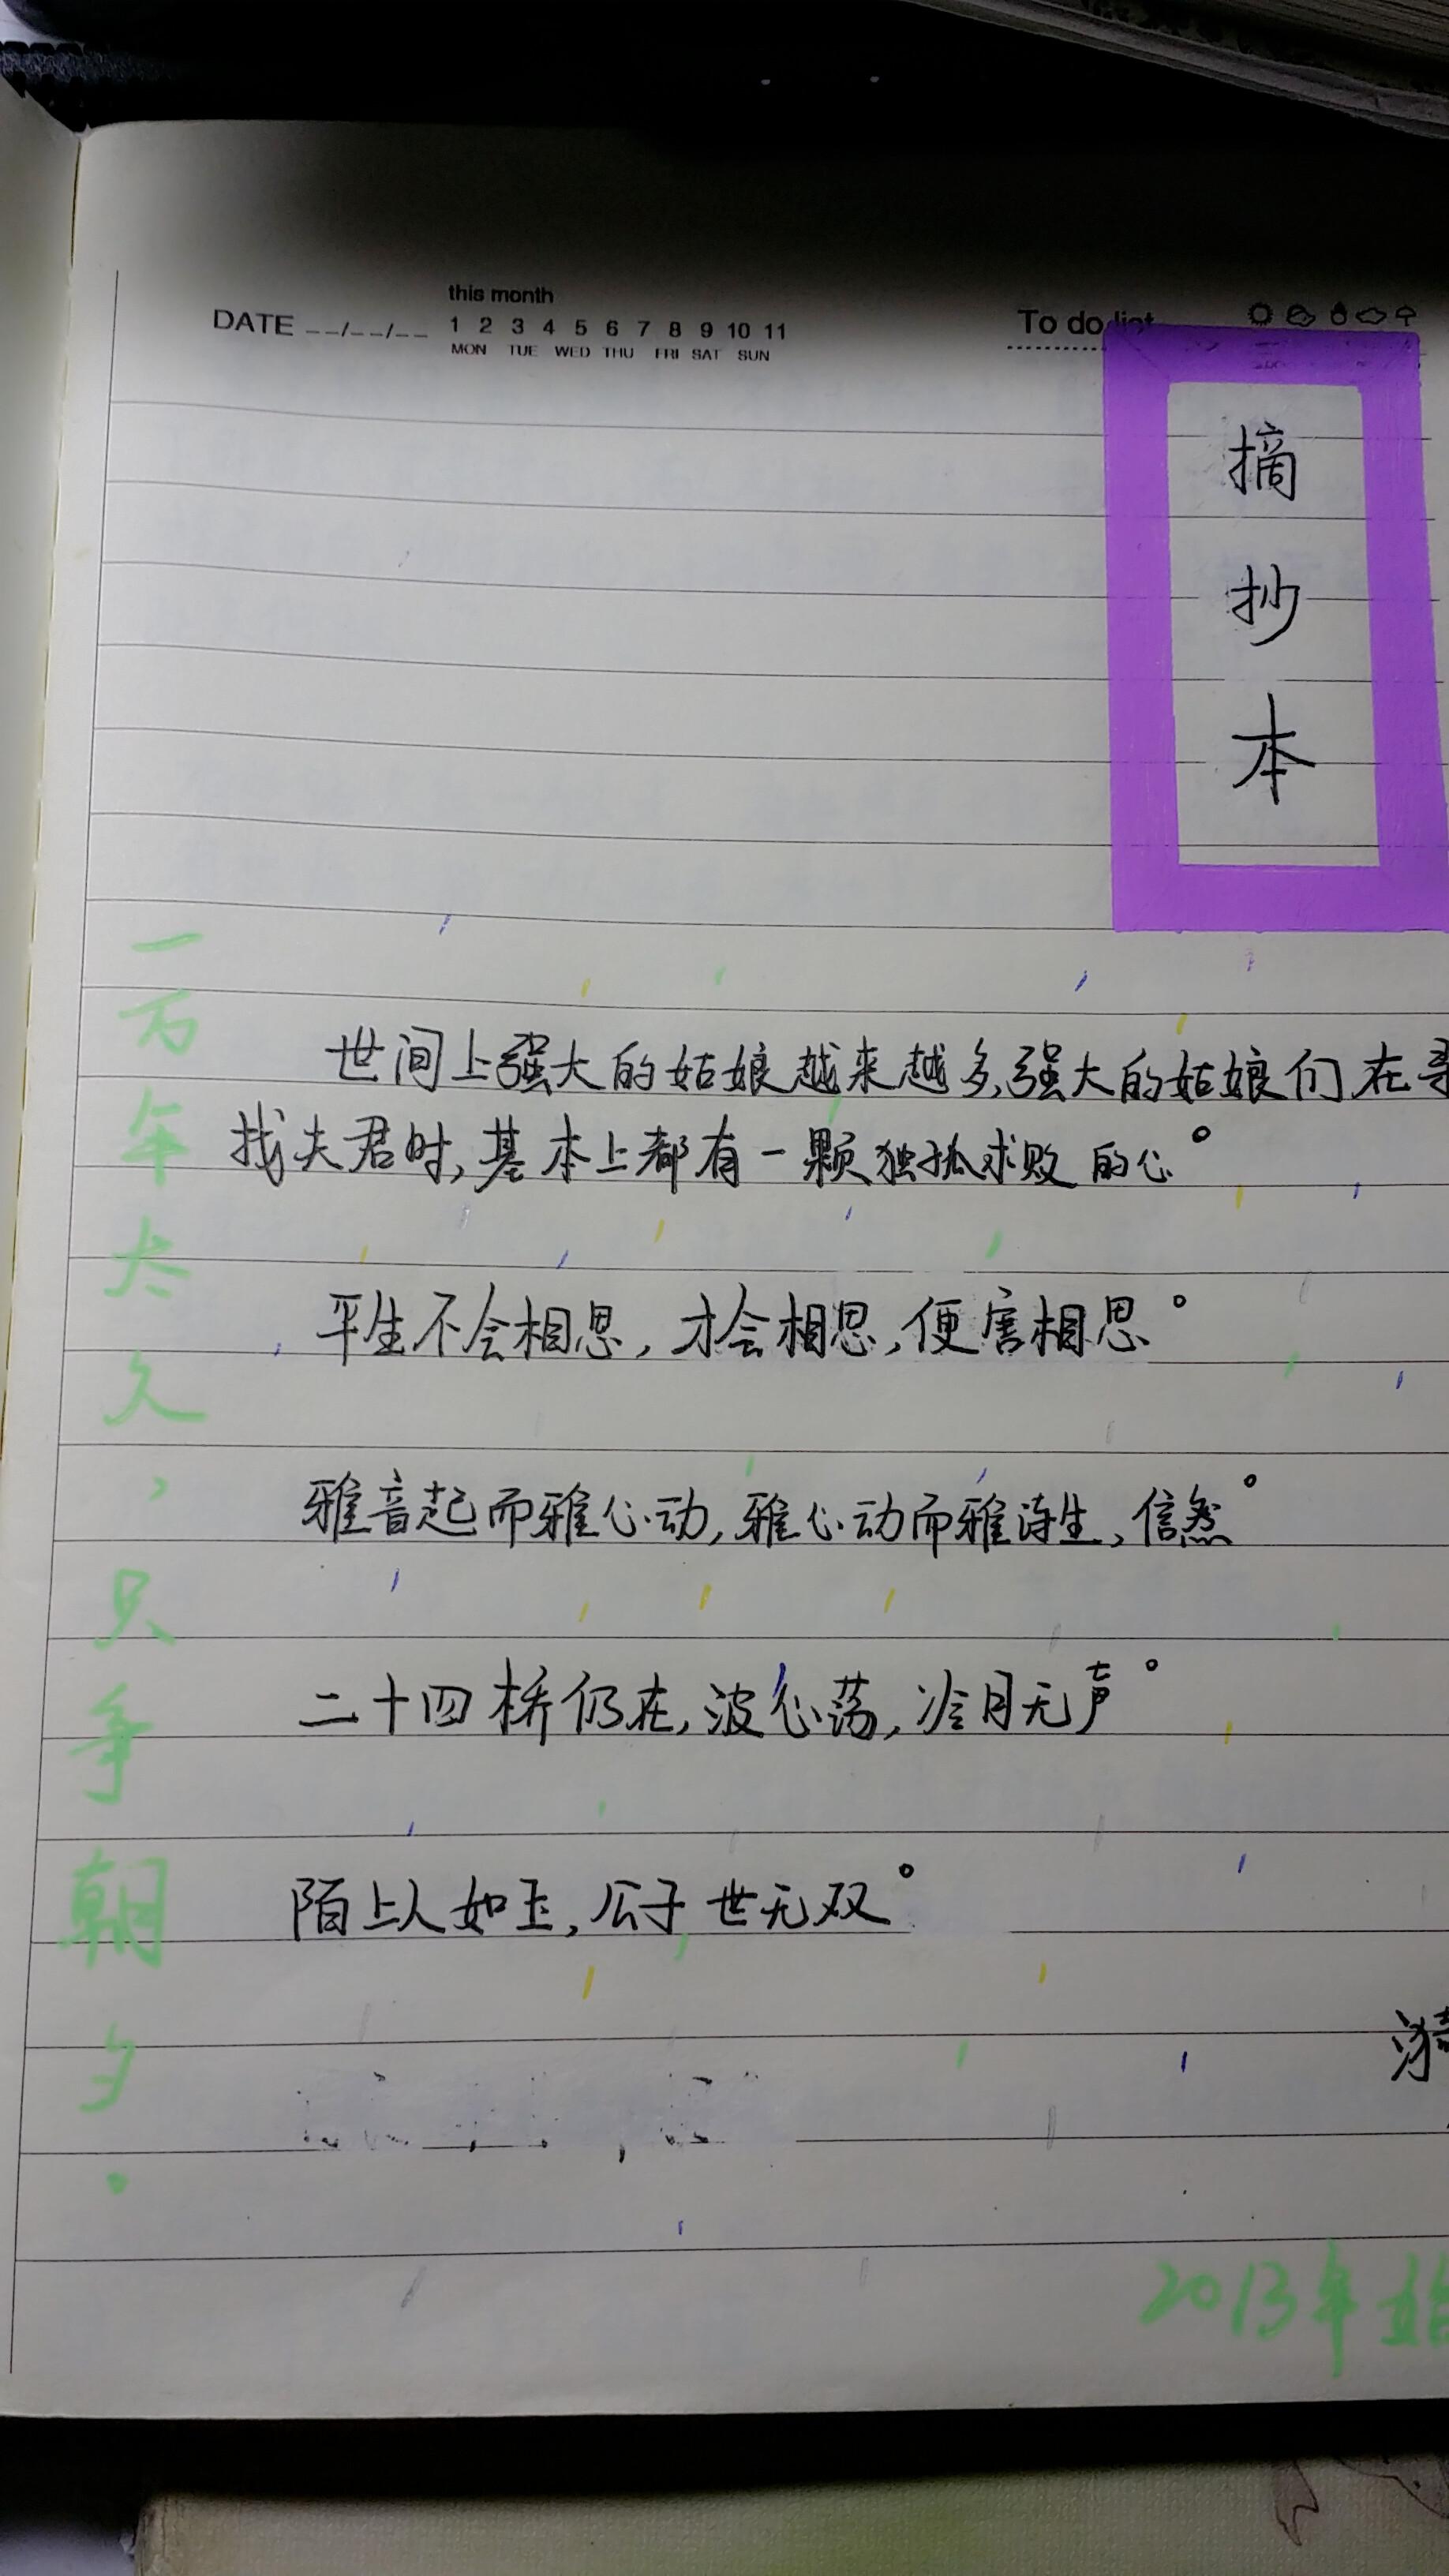 this month
DATE __/__/__ 1 2 3 4 5 6 7 8 9 10 11
MON TUE WED THU FRI SAT SUN
To do list
摘抄本
世间上强大的姑娘越来越多,强大的姑娘们在寻
找夫君时,基本上都有一颗独孤求败的心。
平生不会相思,才会相思,便害相思。
雅音起而雅心动,雅心动而雅诗生,信然。
二十四桥仍在,波心荡,冷月无声。
陌上人如玉,公子世无双。
一万年太久,只争朝夕。
2013年